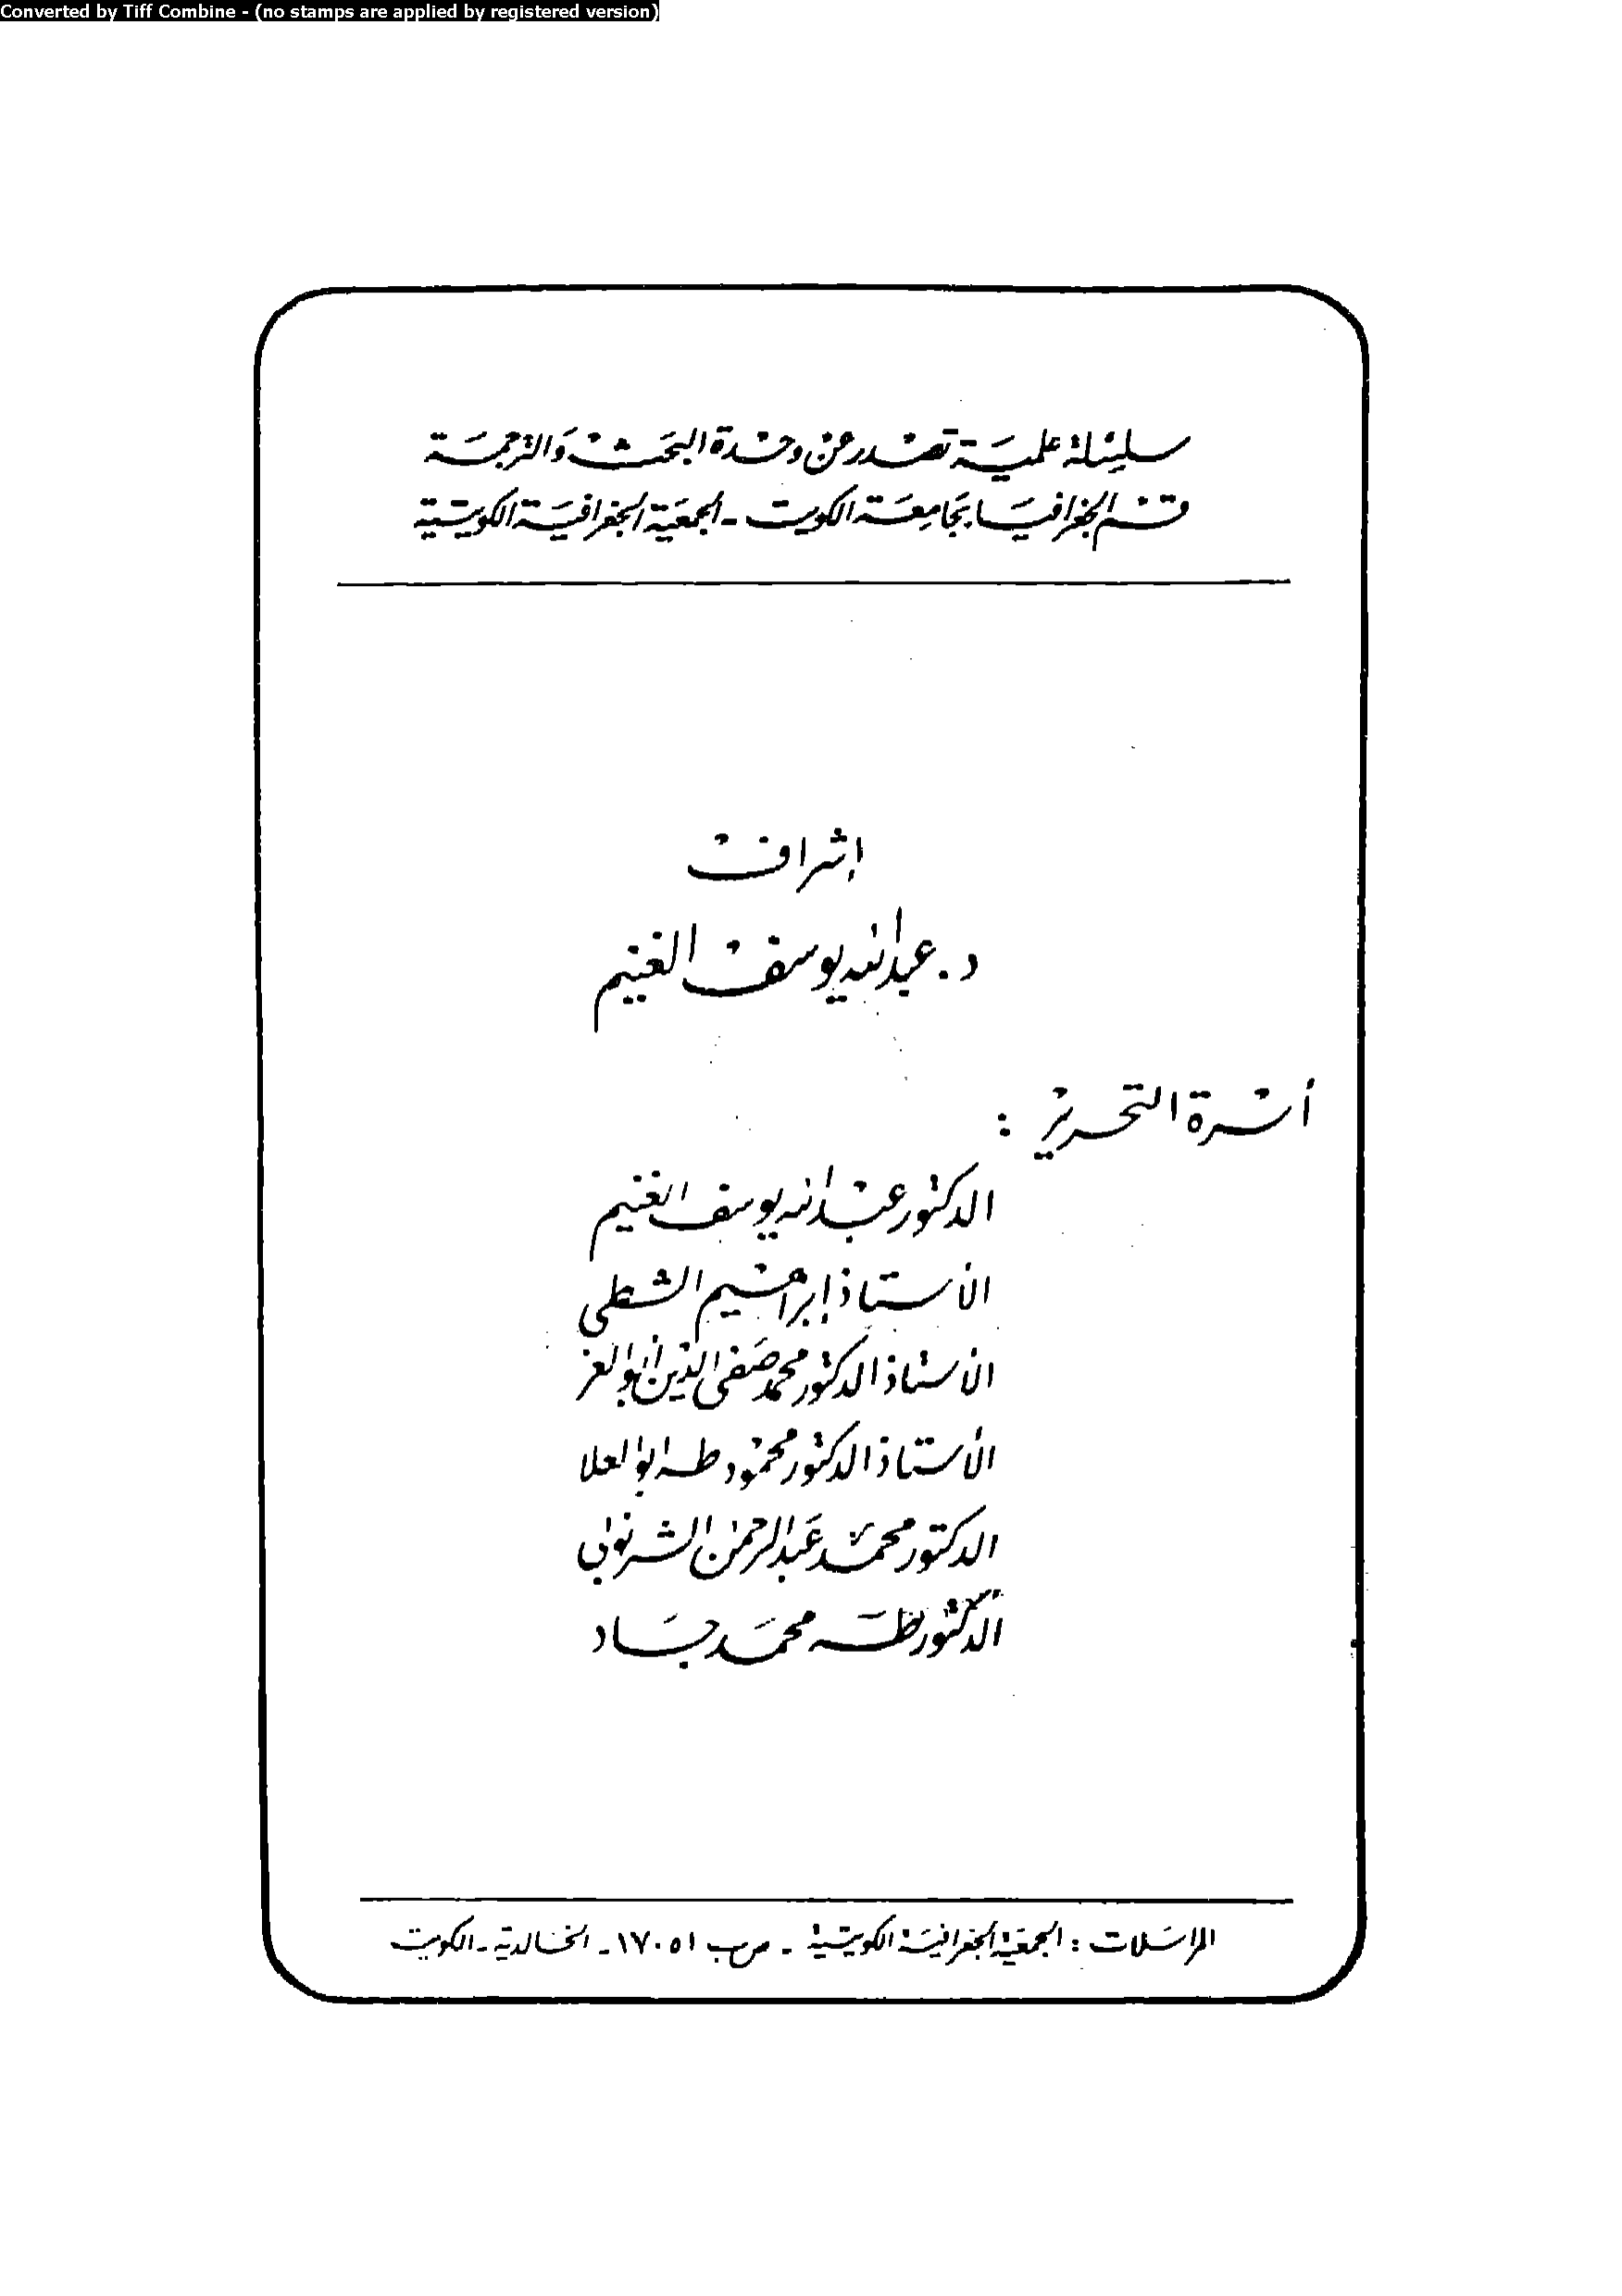 Converted by Tiff Combine - (no stamps are applied by registered version)
سلسلة علمية تصدر عن وحدة البحث والترجمة
قسم الجغرافيا بجامعة الكويت - الجمعية الجغرافية الكويتية
إشراف
د. عبدالله يوسف الغنيم
أسرة التحرير :
الدكتور عبدالله يوسف الغنيم
الأستاذ إبراهيم الشطي
الأستاذ الدكتور محمد صفي الدين أبو العز
الأستاذ الدكتور محمود طه أبو العلا
الدكتور محمد عبدالرحمن الشرنوبي
الدكتور طه محمد جاد
المراسلات : الجمعية الجغرافية الكويتية - ص ب ١٧٠٥١ - الخالدية - الكويت